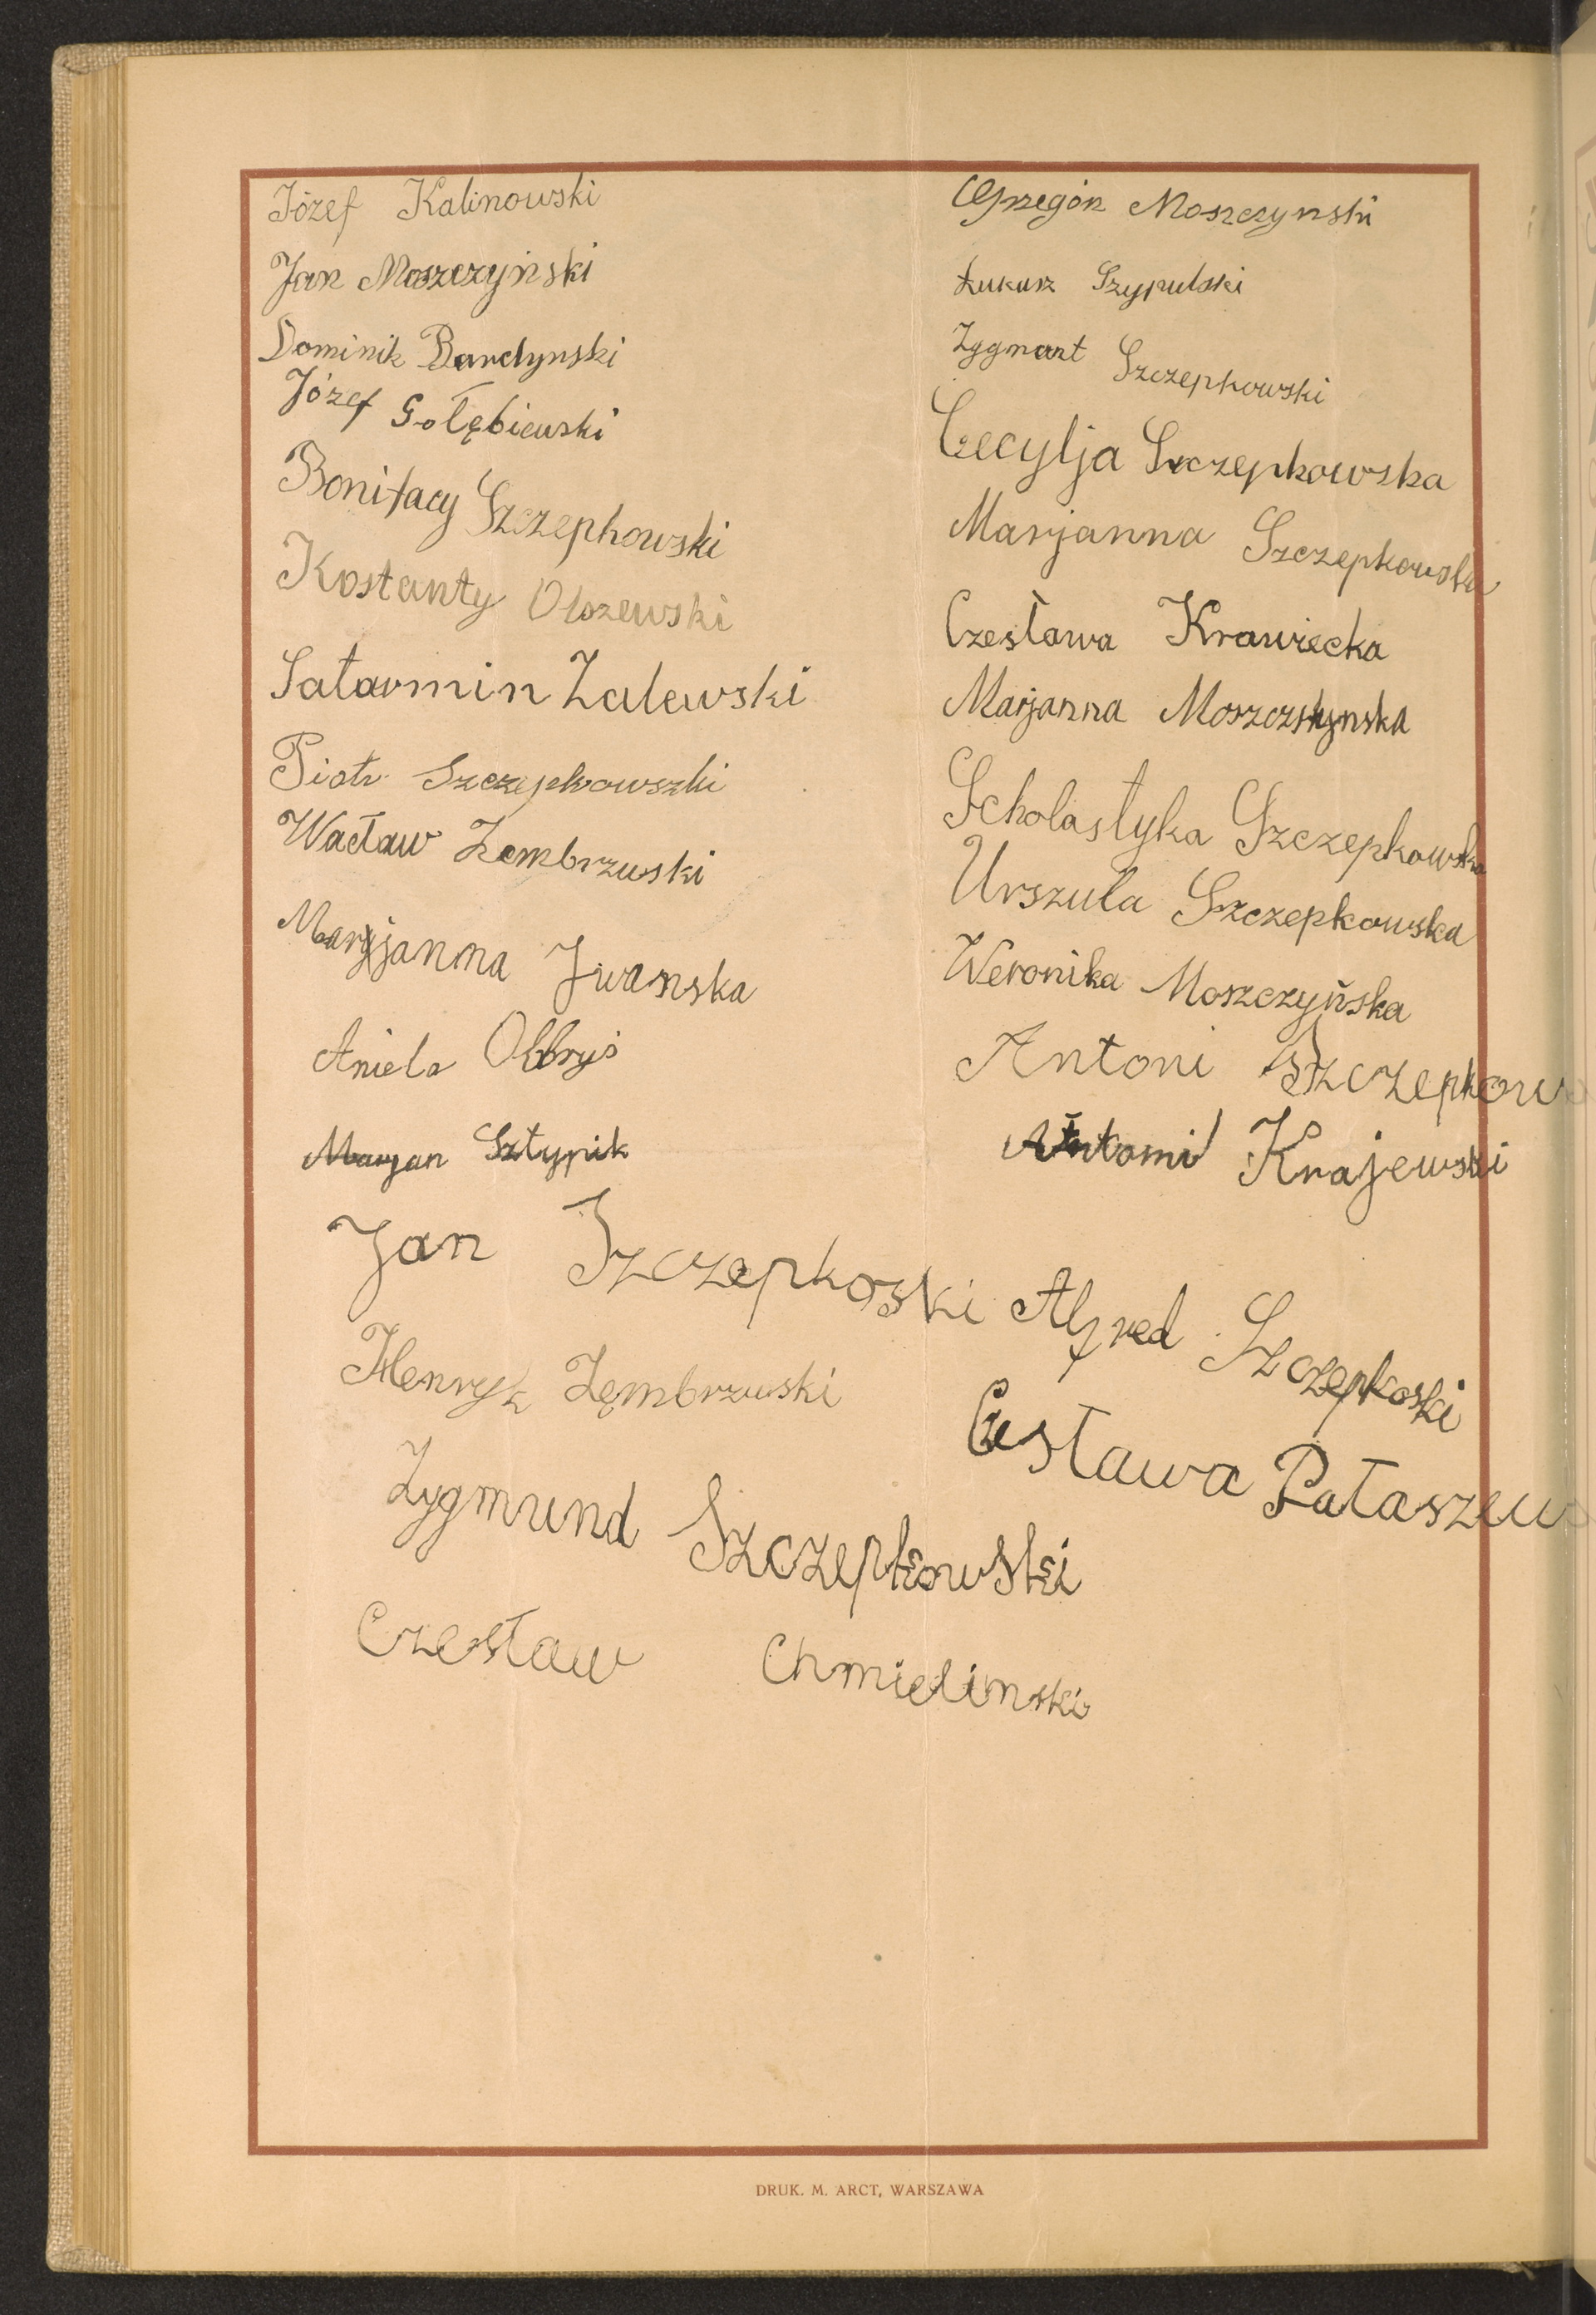 Józef Kalinowski
Jan Moszczyński
Dominik Bardynski
Józef Gołębiewski
Bonifacy Szczepkowski
Kostanty Olszewski
Satarmin Zalewski
Piotr Szczepkowszki
Wacław Zembrzuski
Marjjanna Jwanska
Aniela Olbryś
Maryan Sztypik
Jan Szczepkoski
Henryk Zembrzuski
Zygmund Szczepkowski
Czesław Chmielinski
Grzegorz Moszczynski
Łukasz Szypulski
Zygmunt Szczepkowski
Cecylja Szczepkowska
Marjanna Szczepkowska
Czesława Krawiecka
Marjanna Moszczynska
Scholastyka Szczepkowska
Urszula Szczepkowska
Weronika Moszczyńska
Antoni Szczepkows
Antoni Krajewski
Alfred Szczepkoski
Czesława Pataszews
DRUK. M. ARCT, WARSZAWA